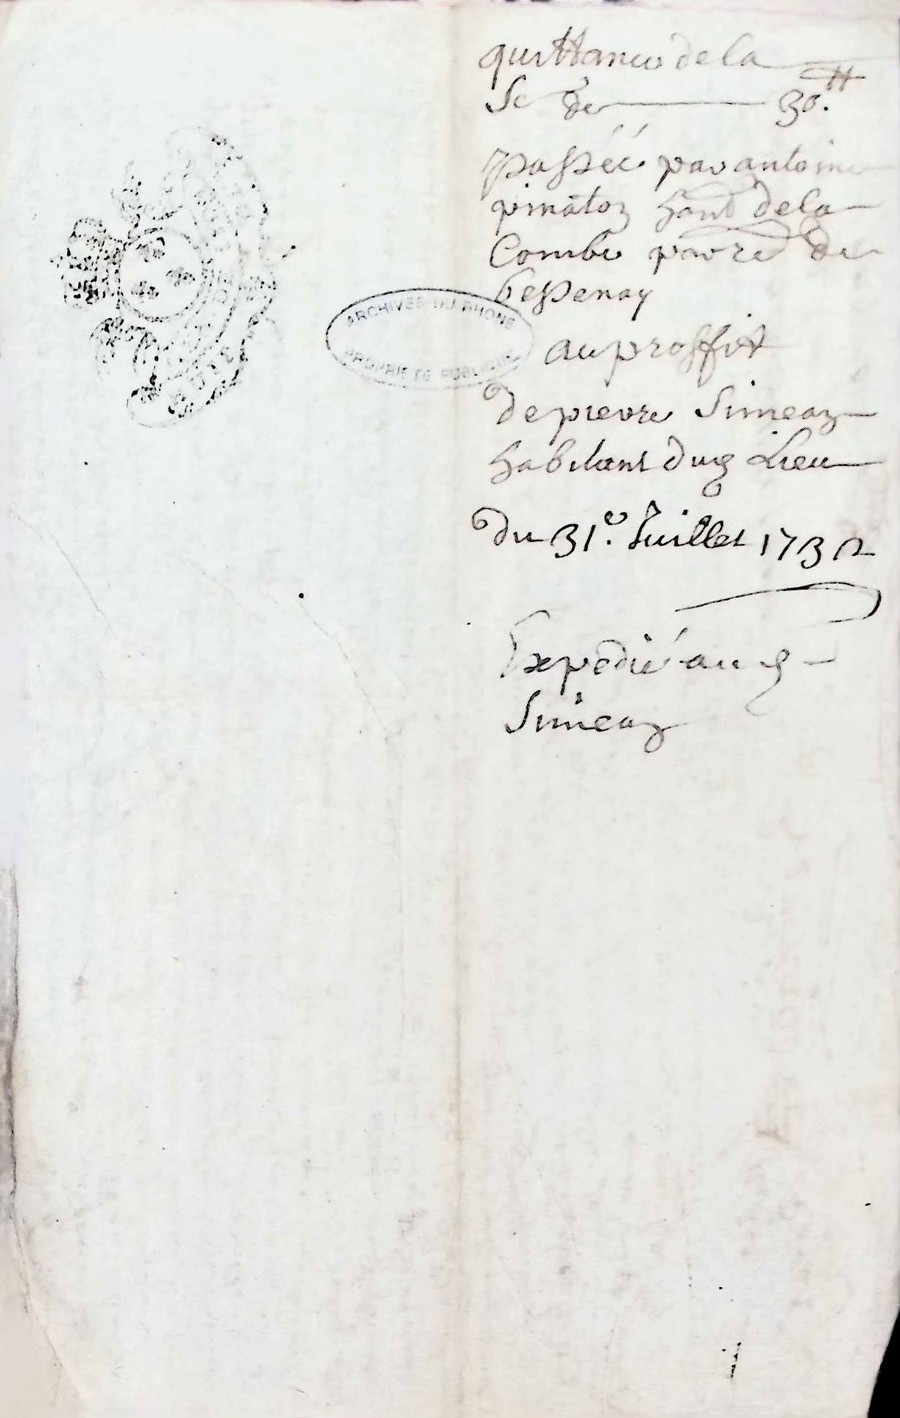 quittance de la
Se de 30.ᵗᵗ
passéé par antoine
pinatoz hant de la
Combe parre de
bessenay
au proffit
de pierre Simeaz
habitant dud Lieu
du 31.e Juillet 1732
Expedié aud
Simeaz
ARCHIVES DU RHONE
PROPRIETE PUBLIQUE